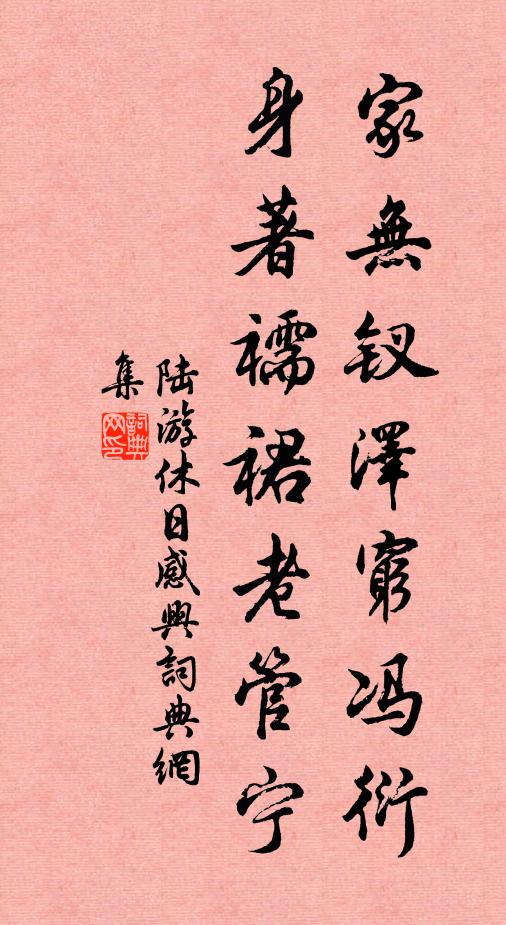 家無钗澤窮冯衍
身著襦裙老管宁
陆游休日感興詞典網
集
詞典
网印